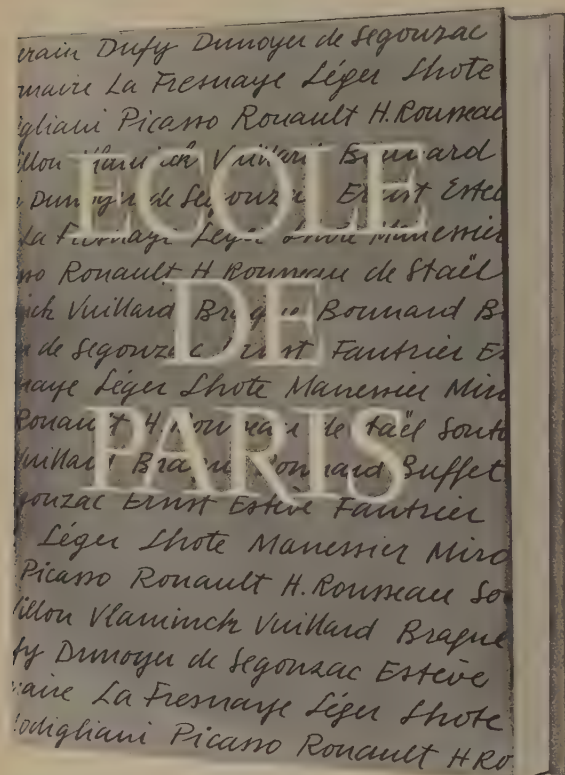 erain Dufy Dunoyer de Segonzac
maire La Fresnaye Léger Lhote
igliani Picasso Rouault H. Rousseau
illon Vlaminck Vuillard Bonnard
Dunoyer de Segonzac Ernst Estèv
La Fresnaye Léger Lhote Manessier
sso Rouault H Rousseau de Staël
nck Vuillard Braque Bonnard B
de Segonzac Ernst Fautrier Es
naye Léger Lhote Manessier Miro
Rouault H. Rousseau de Staël Souti
Vuillard Braque Bonnard Buffet
gonzac Ernst Estève Fautrier
Léger Lhote Manessier Miro
Picasso Rouault H. Rousseau Sou
Villon Vlaminck Vuillard Braque
fy Dunoyer de Segonzac Estève
maire La Fresnaye Léger Lhote
Modigliani Picasso Rouault H Ro
ECOLE
DE
PARIS